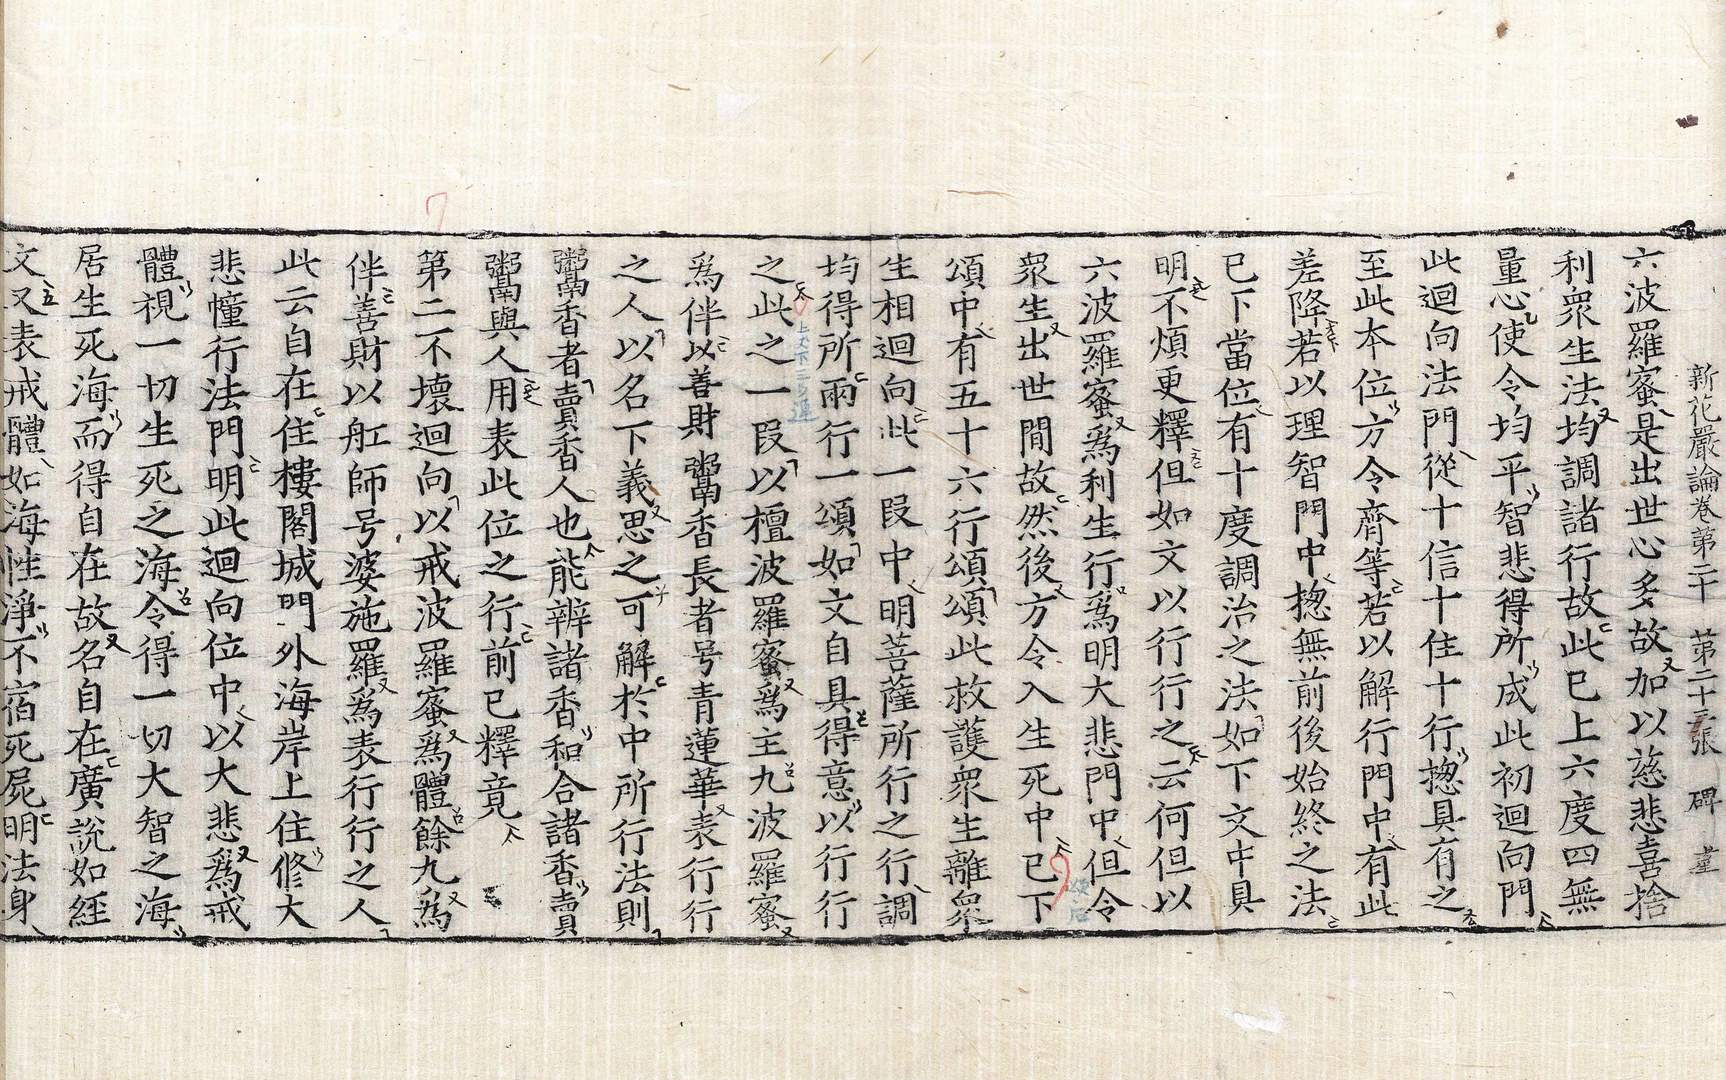 新花嚴論卷第二十　第二十三張　碑　堂
六波羅蜜是出世心多故加以慈悲喜捨
利衆生法均調諸行故此已上六度四無
量心使令均平智悲得所成此初迴向門
此迴向法門從十信十住十行揔具有之
至此本位方令齊等若以解行門中有此
差降若以理智門中揔無前後始終之法
已下當位有十度調治之法如下文中具
明不煩更釋但如文以行行之云何但以
六波羅蜜爲利生行爲明大悲門中但令
衆生出世閒故然後方令入生死中已下
頌中有五十六行頌頌此救護衆生離衆
生相迴向此一段中明菩薩所行之行調
均得所兩行一頌如文自具得意以行行
之此之一段以檀波羅蜜爲主九波羅蜜
爲伴以善財鬻香長者号青蓮華表行行
之人以名下義思之可解於中所行法則
鬻香者賣香人也能辨諸香和合諸香賣
鬻與人用表此位之行前已釋竟
第二不壞迴向以戒波羅蜜爲體餘九爲
伴善財以舡師号婆施羅爲表行行之人
此云自在住樓閣城門外海岸上住修大
悲幢行法門明此迴向位中以大悲爲戒
體視一切生死之海令得一切大智之海
居生死海而得自在故名自在廣說如經
文又表戒體如海性淨不宿死屍明法身